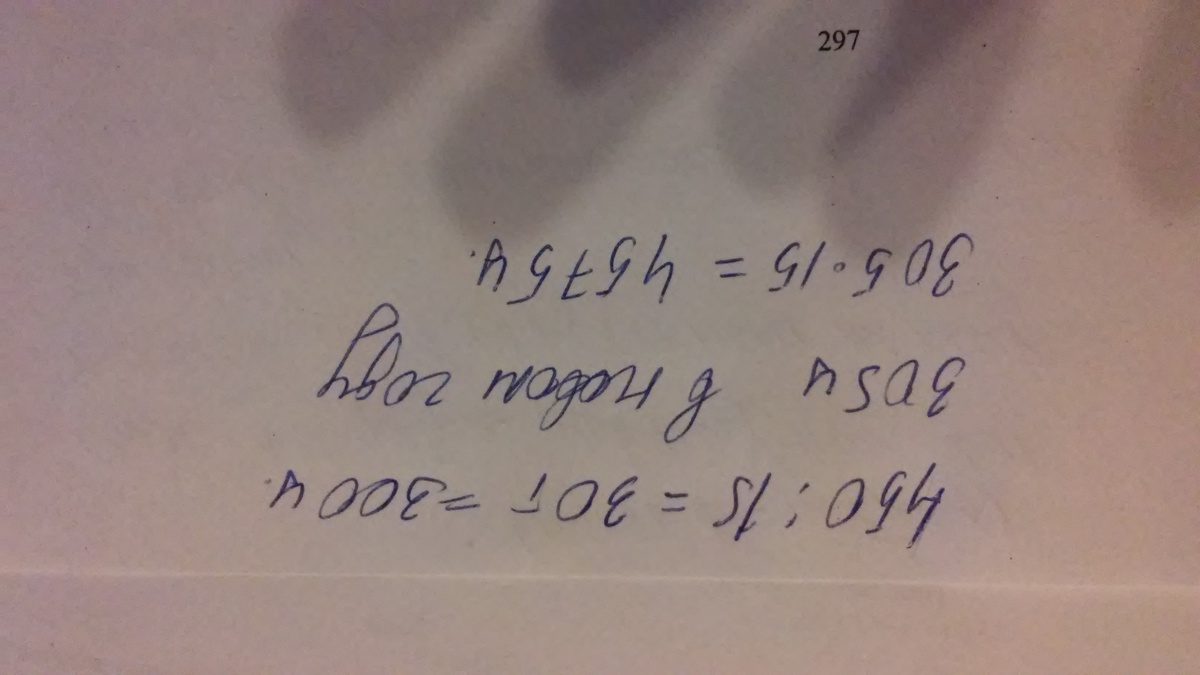 450 : 15 = 30 т = 300 ц.
305 ц в новом году
305 · 15 = 4575 ц.
297